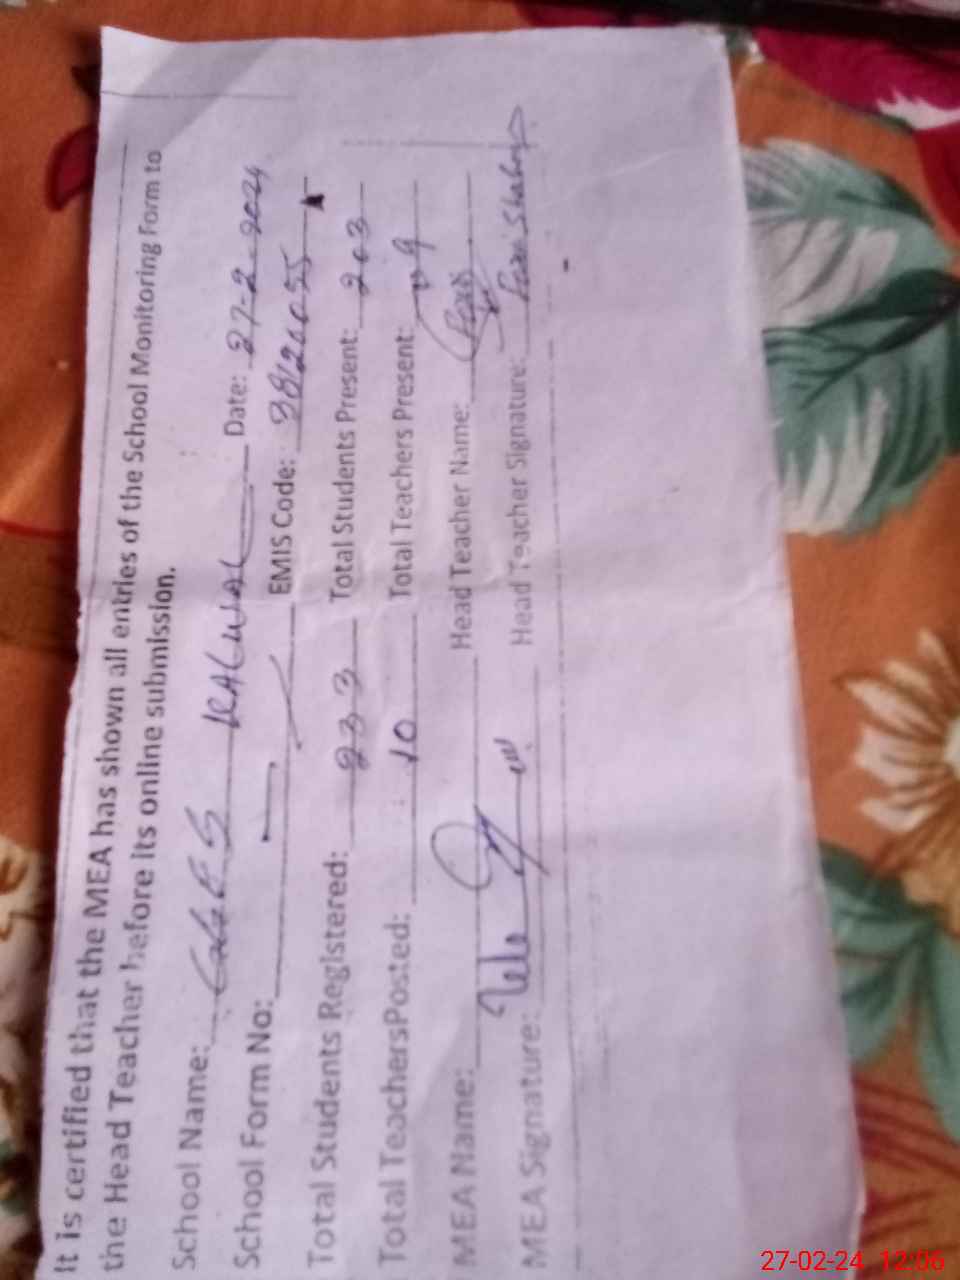 It is certified that the MEA has shown all entries of the School Monitoring Form to
the Head Teacher before its online submission.
School Name: GGES Date: 27-2-2024
School Form No: EMIS Code:
Total Students Registered: 233 Total Students Present: 203
Total Teachers Posted: 10 Total Teachers Present: 09
MEA Name: Head Teacher Name:
MEA Signature: Head Teacher Signature:
27-02-24, 12:06